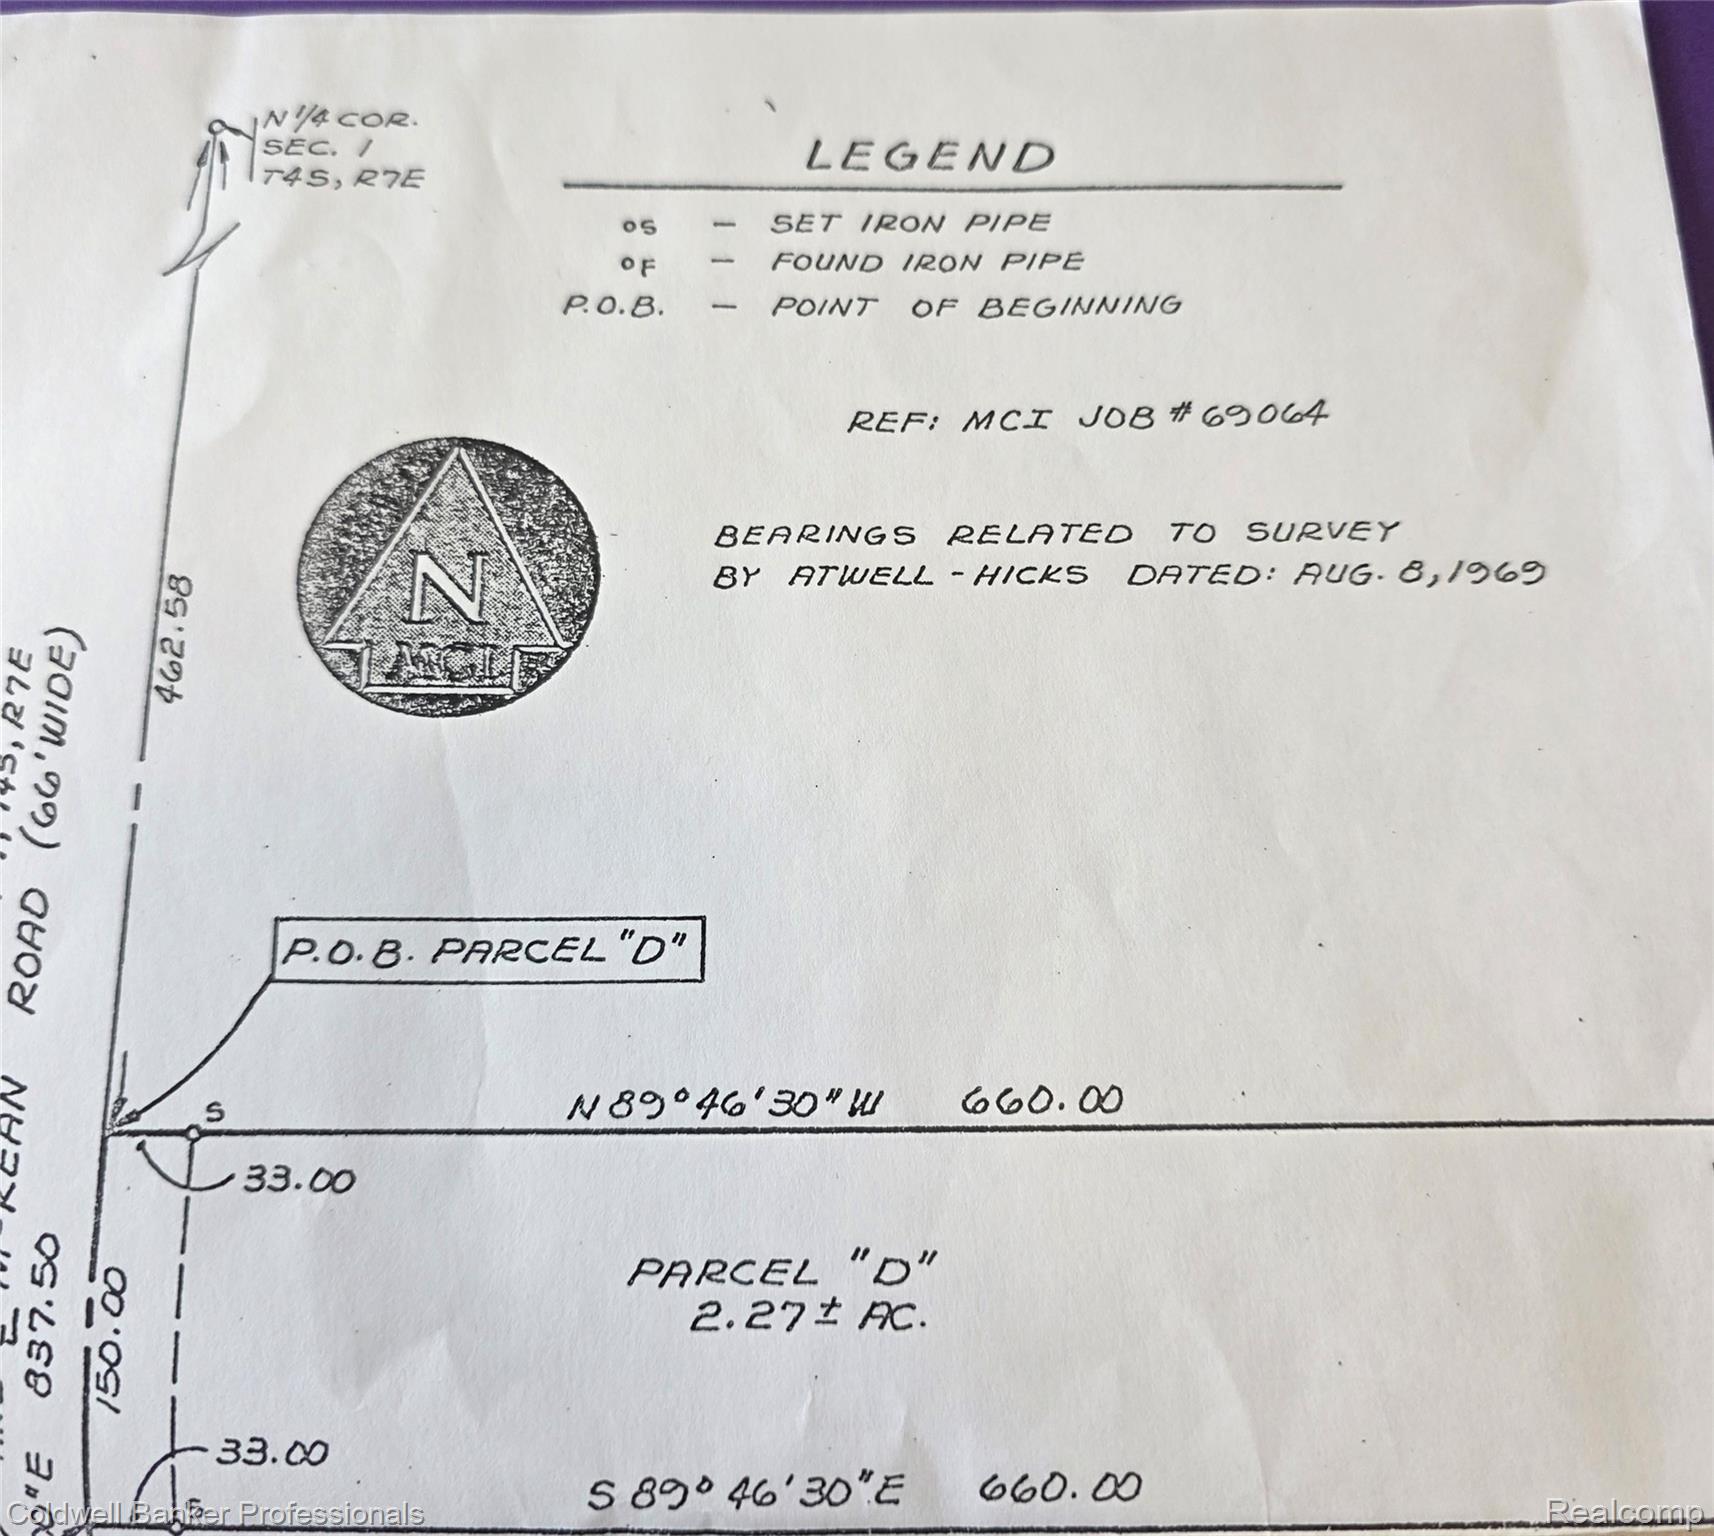 N 1/4 COR.
SEC. 1
T4S, R7E
LEGEND
oS - SET IRON PIPE
oF - FOUND IRON PIPE
P.O.B. - POINT OF BEGINNING
REF: MCI JOB # 69064
BEARINGS RELATED TO SURVEY
BY ATWELL-HICKS DATED: AUG. 8, 1969
N
MCI
462.58
T4S, R7E
ROAD (66' WIDE)
P.O.B. PARCEL "D"
S
N 89° 46' 30" W 660.00
33.00
PARCEL "D"
2.27 ± AC.
150.00
"E 837.50
33.00
S 89° 46' 30" E 660.00
Coldwell Banker Professionals
Realcomp